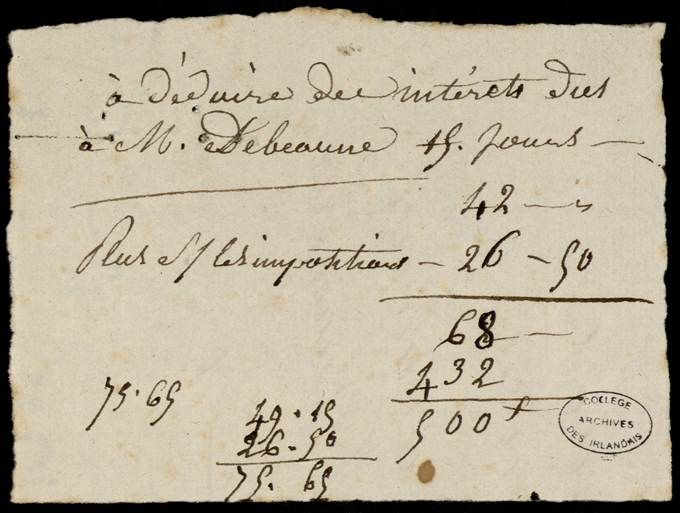 à déduire des intérets dus
à M. Debeaune 15. jours —
42 — "
Plus S/ les impositions — 26 — 50
68 —
432
500 f
75. 65
49. 15
26. 50
75. 65
COLLEGE
ARCHIVES
DES IRLANDAIS